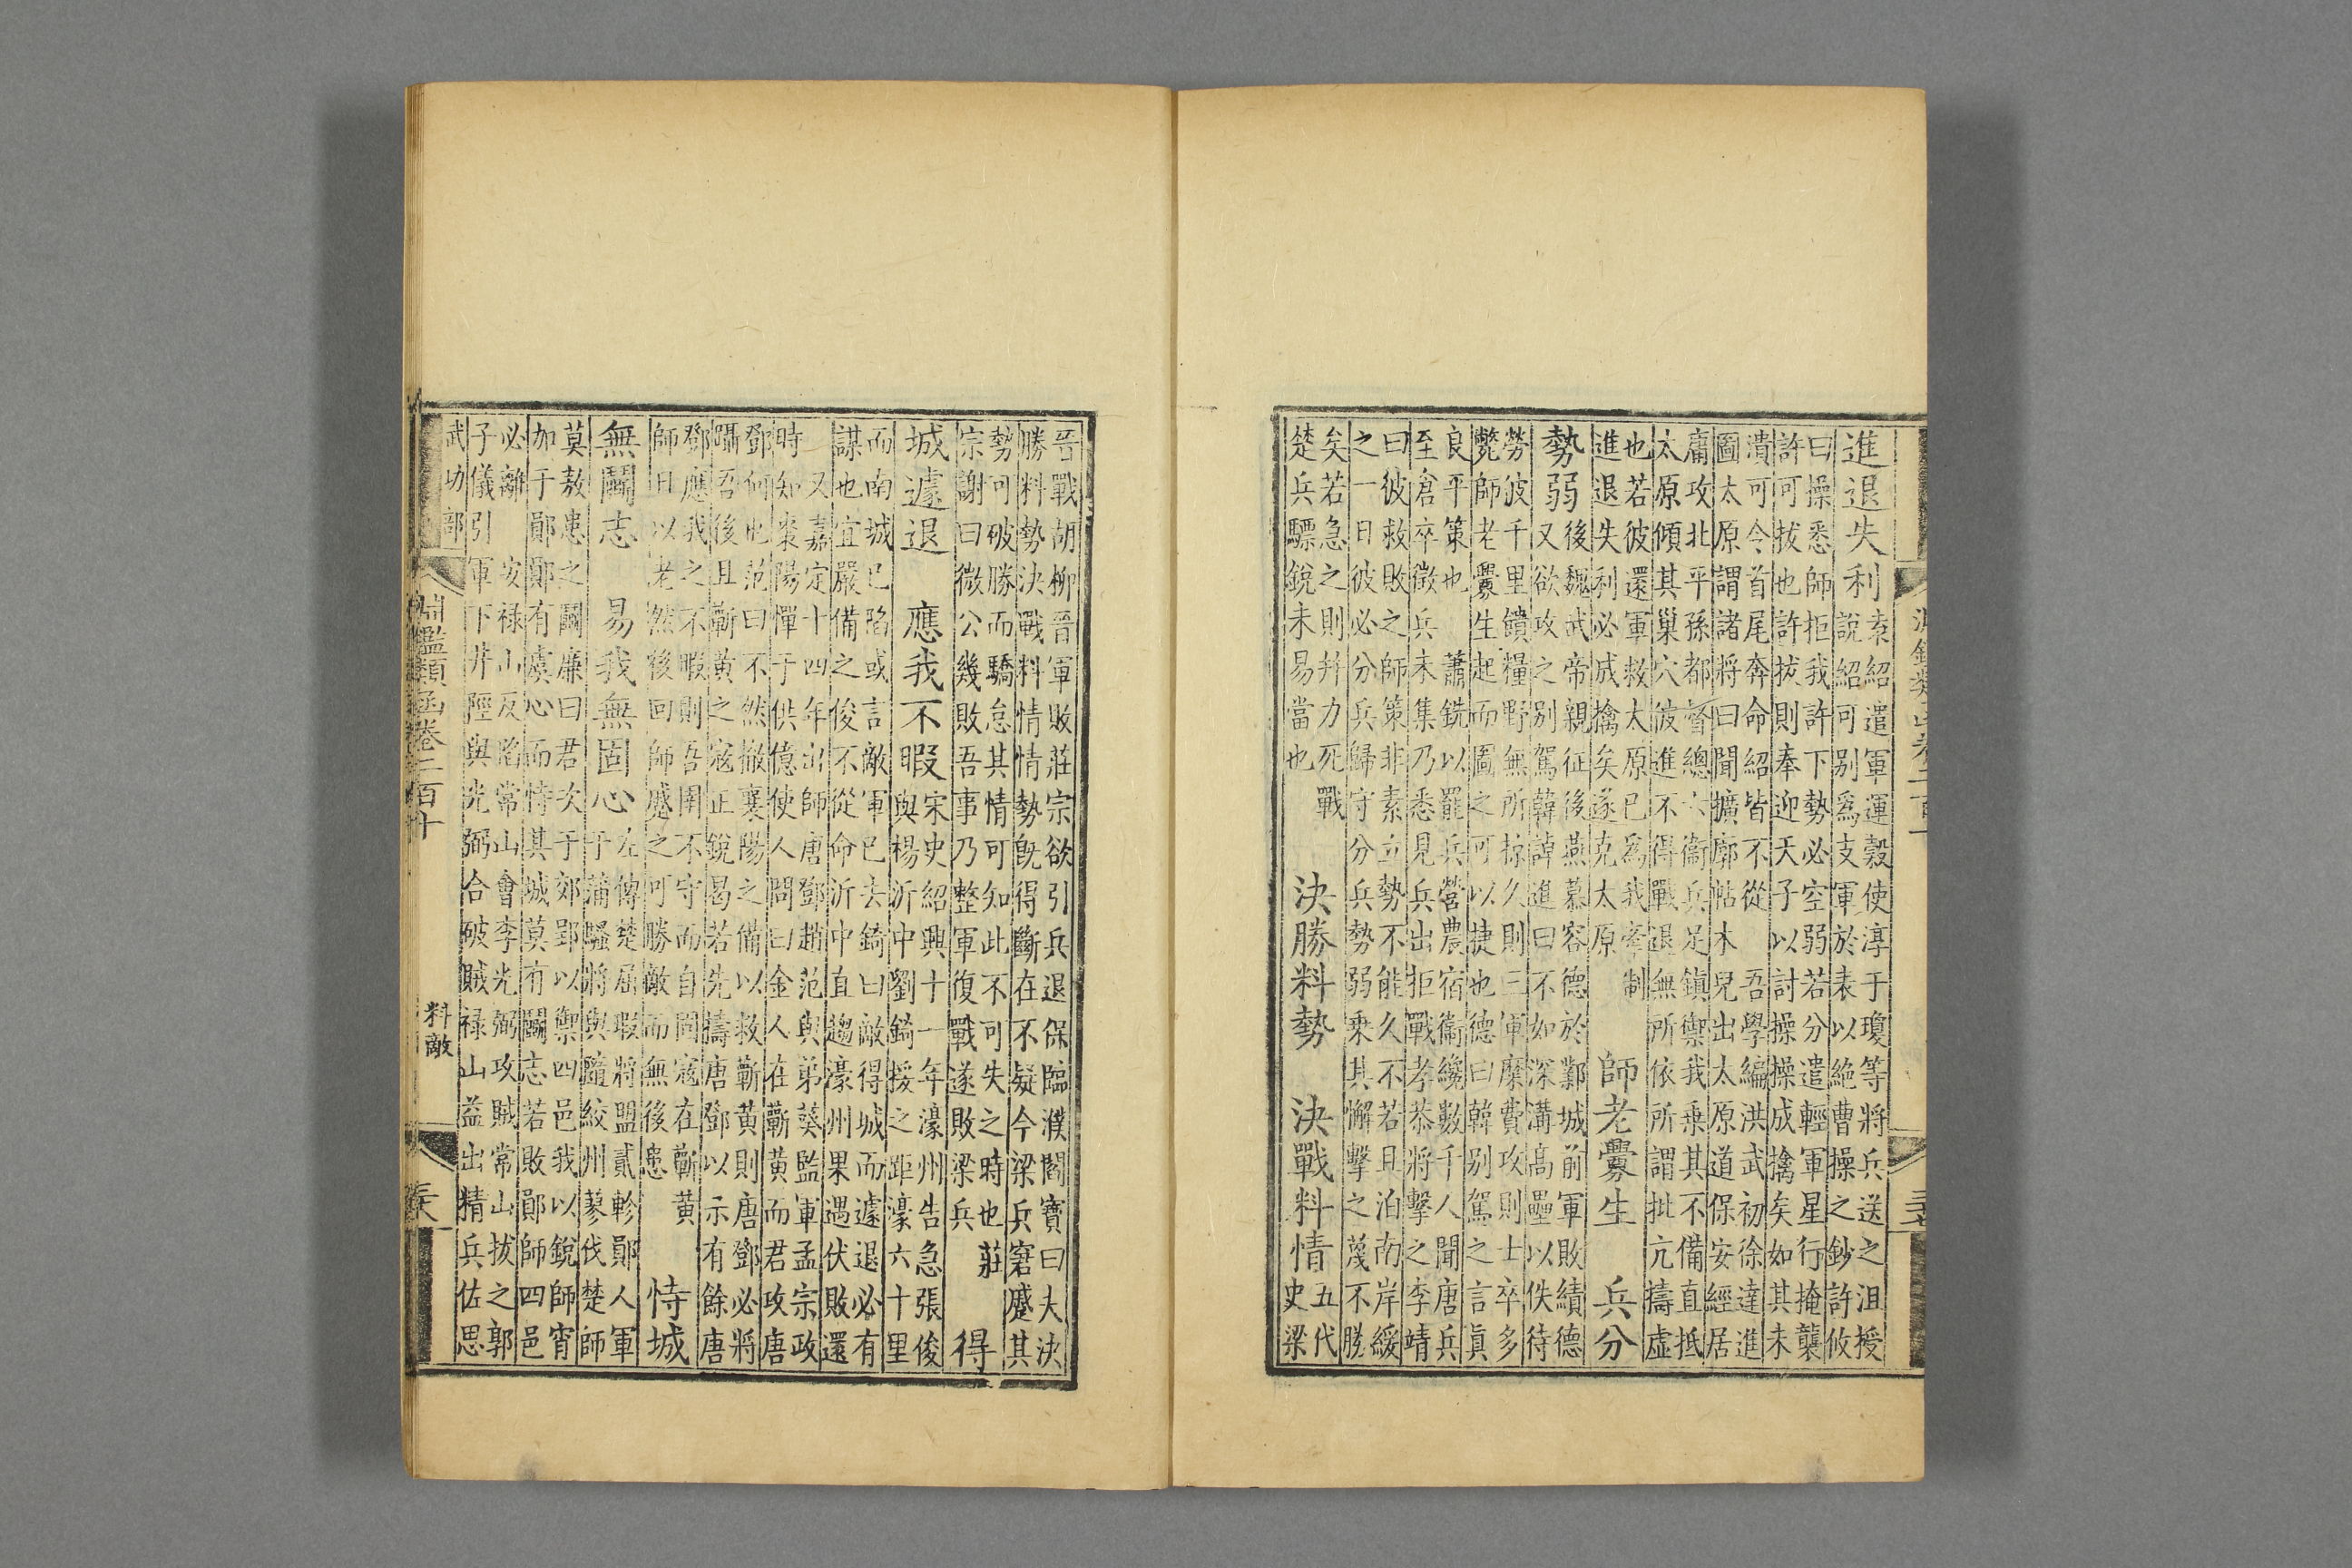 進退失利
袁紹遣軍運穀使淳于瓊等將兵送之沮授
說紹可别為支軍於表以絕曹操之鈔許攸
曰操悉師拒我許下勢必空弱若分遣輕軍星行掩襲
許可拔也許拔則奉迎天子以討操操成擒矣如其未
潰可令首尾奔命紹皆不從　吾學編洪武初徐達進
圖太原謂諸將曰聞擴廓帖木兒出太原道保安經居
庸攻北平孫都督總六衞兵足鎮禦我乗其不備直抵
太原傾其巢穴彼進不得戰退無所依所謂批亢擣虛
也若彼還軍救太原已為我牽制
進退失利必成擒矣遂克太原
師老釁生　兵分
勢弱
後魏武帝親征後燕慕容德於鄴城前軍敗績德
又欲攻之别駕韓進曰不如深溝高壘以佚待
勞彼千里饋糧野無所掠久則三軍糜費攻則士卒多
斃師老釁生起而圖之可以捷也德曰韓别駕之言眞
良平策也　蕭銑以罷兵營農宿衞纔數千人聞唐兵
至倉卒徵兵未集乃悉見兵出拒戰孝恭將擊之李靖
曰彼救敗之師策非素立勢不能久不若且泊南岸緩
之一日彼必分兵歸守分兵勢弱乘其懈擊之蔑不勝
矣若急之則并力死戰
楚兵驃銳未易當也
決勝料勢　決戰料情
五代
史梁
晉戰胡柳晉軍敗莊宗欲引兵退保臨濮閻寶曰夫決
勝料勢決戰料情情勢旣得斷在不疑今梁兵窘蹙其
勢可破勝而驕怠其情可知此不可失之時也莊
宗謝曰微公幾敗吾事乃整軍復戰遂敗梁兵
得
城遽退　應我不暇
宋史紹興十一年濠州告急張俊
與楊沂中劉錡援之距濠六十里
而南城已陷或言敵軍已去錡曰敵得城而遽退必有
謀也宜嚴備之俊不從命沂中直趨濠州果遇伏敗還
又嘉定十四年出師唐鄧趙范與弟葵監軍孟宗政
時知棗陽憚于供億使人問曰金人在蘄黃而君攻唐
鄧何也范曰不然撤襄陽之備以救蘄黃則唐鄧必將
躡吾後且蘄黃之寇正銳曷若先擣唐鄧以示有餘唐
鄧應我之不暇則吾圉不守而自固寇在蘄黃
師日以老然後回師蹙之可勝敵而無後患
恃城
無鬭志　易我無固心
左傳楚屈瑕將盟貳軫鄖人軍
于蒲騷將與隨絞州蓼伐楚師
莫敖患之鬭廉曰君次于郊郢以禦四邑我以銳師宵
加于鄖鄖有虞心而恃其城莫有鬭志若敗鄖師四邑
必離　安禄山反陷常山會李光弼攻賊常山拔之郭
子儀引軍下井陘與光弼合破賊禄山益出精兵佐思
武功部
淵鑑類函卷二百十
料敵